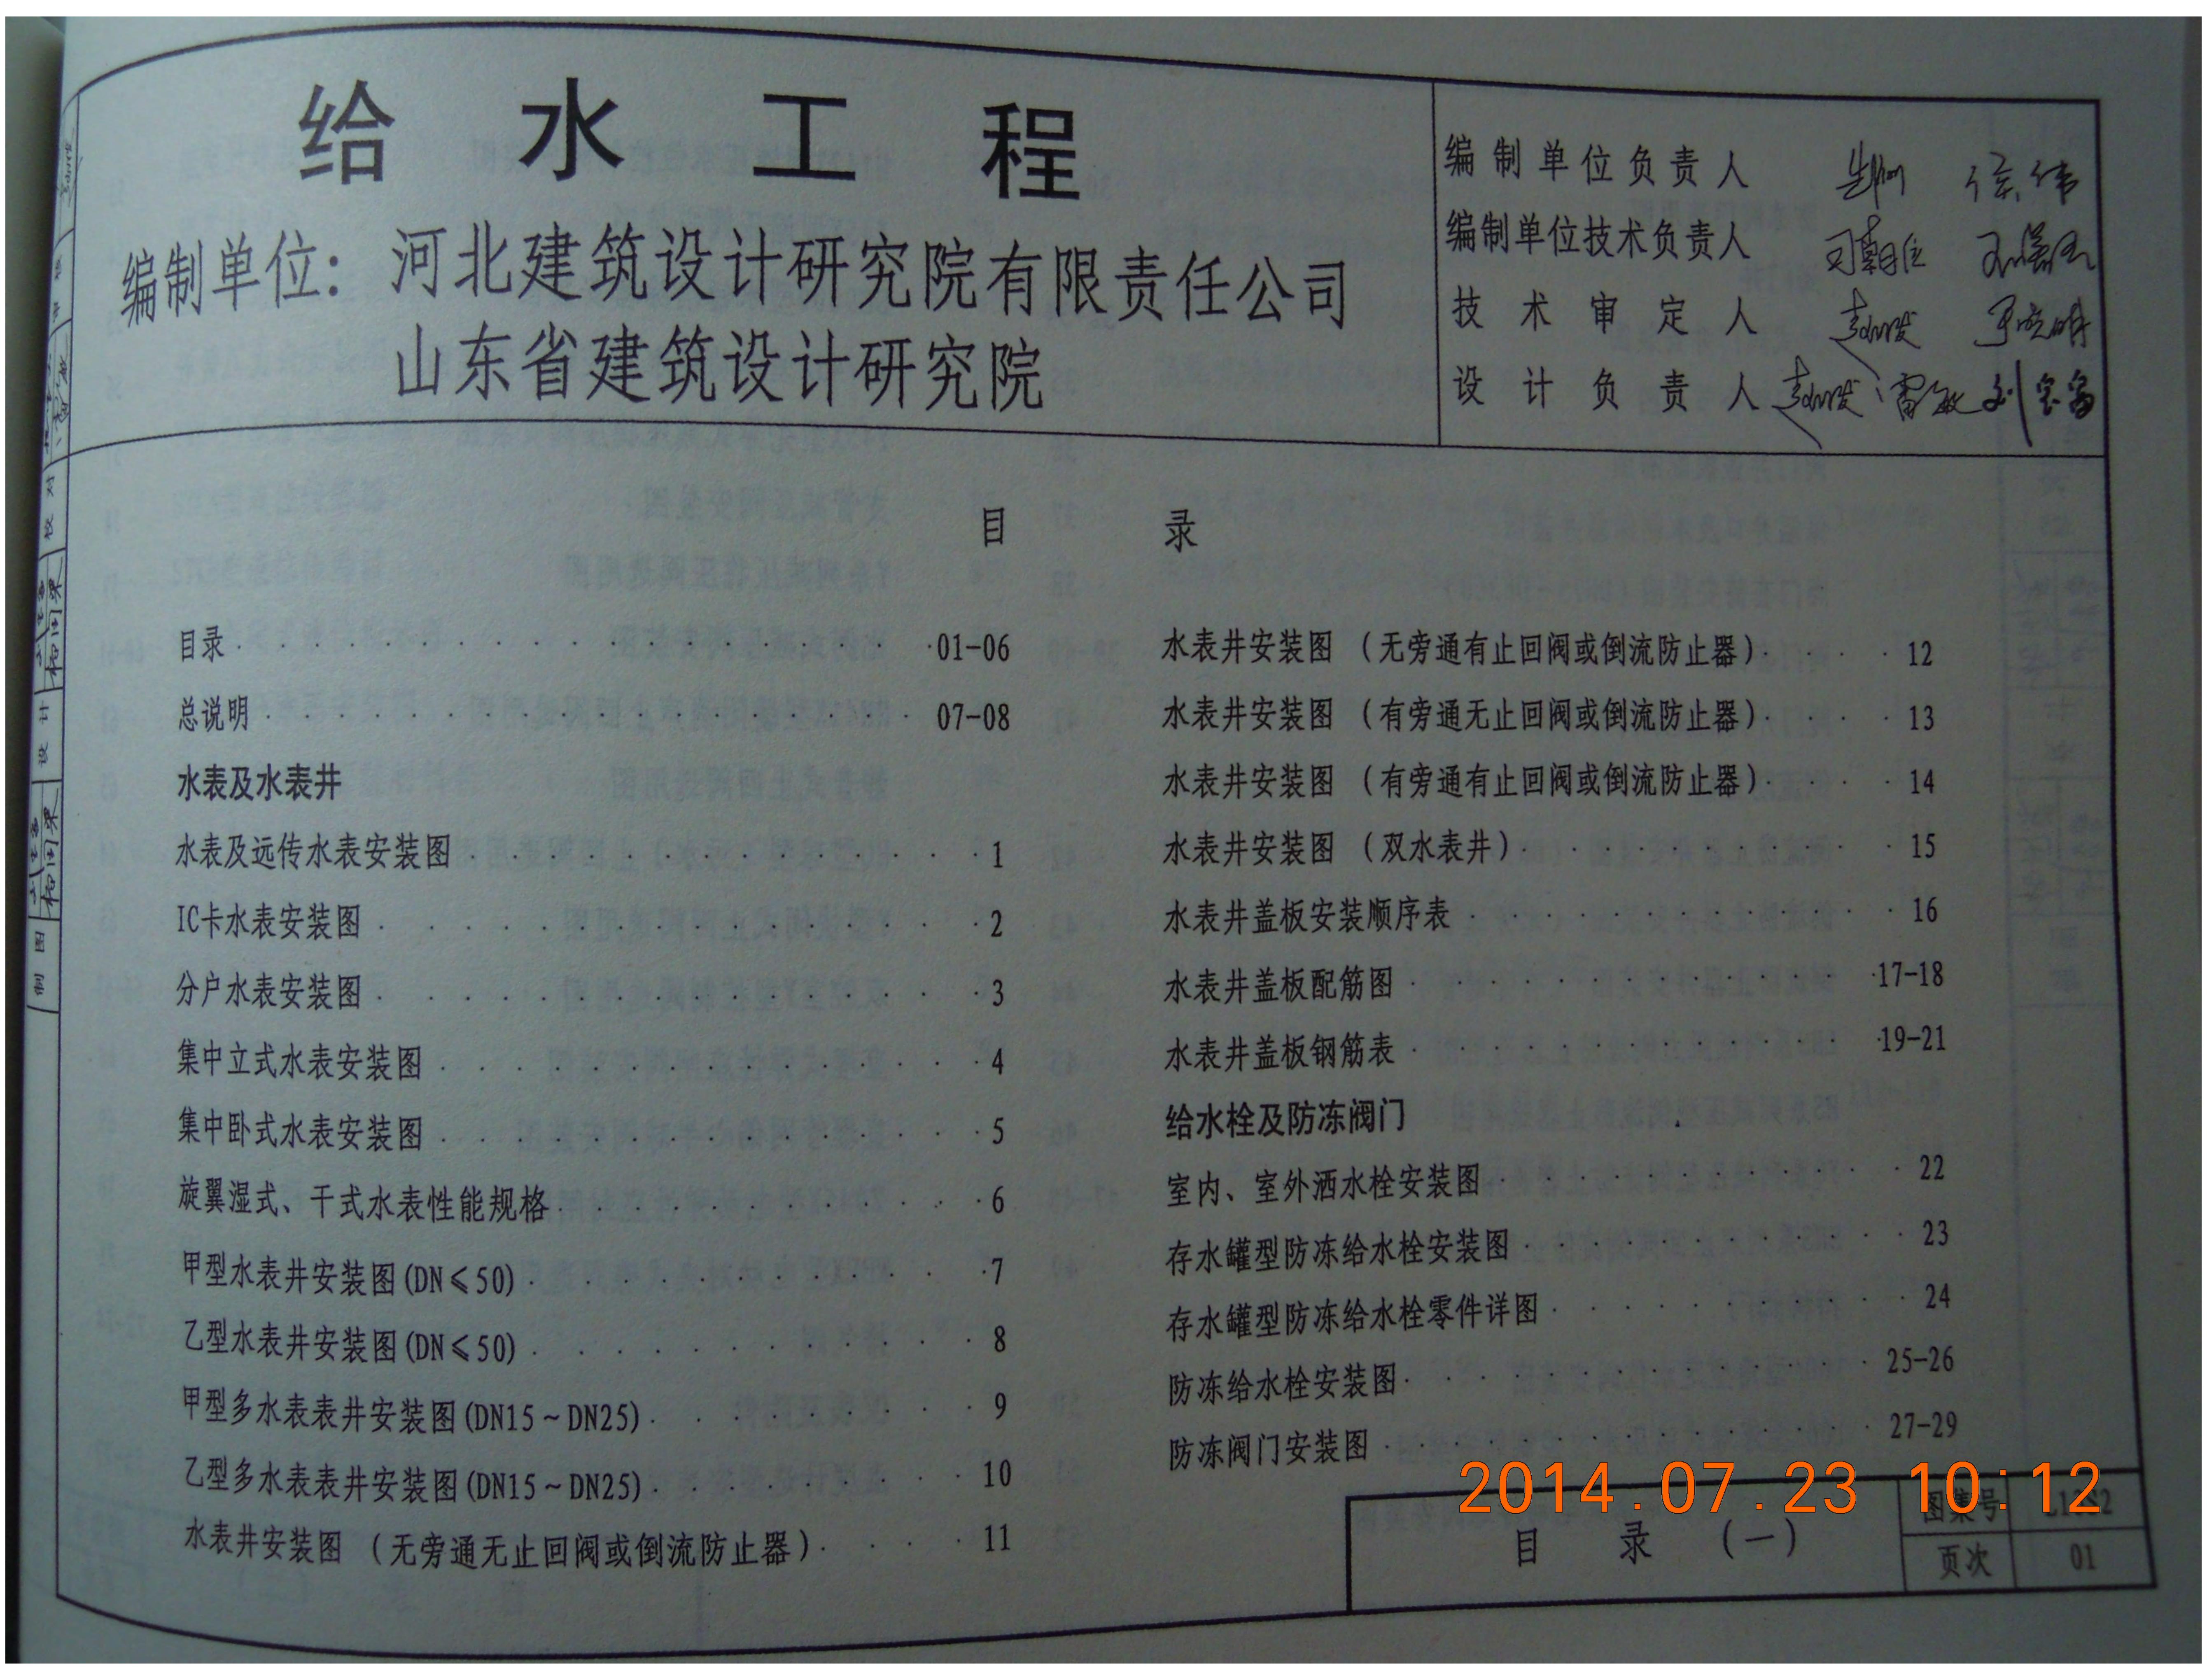 给水工程
编制单位：河北建筑设计研究院有限责任公司
山东省建筑设计研究院
编制单位负责人
编制单位技术负责人
技术审定人
设计负责人 刘宗秀
目录
目录 01-06
总说明 07-08
水表及水表井
水表及远传水表安装图 1
IC卡水表安装图 2
分户水表安装图 3
集中立式水表安装图 4
集中卧式水表安装图 5
旋翼湿式、干式水表性能规格 6
甲型水表井安装图(DN≤50) 7
乙型水表井安装图(DN≤50) 8
甲型多水表表井安装图(DN15～DN25) 9
乙型多水表表井安装图(DN15～DN25) 10
水表井安装图（无旁通无止回阀或倒流防止器） 11
水表井安装图（无旁通有止回阀或倒流防止器） 12
水表井安装图（有旁通无止回阀或倒流防止器） 13
水表井安装图（有旁通有止回阀或倒流防止器） 14
水表井安装图（双水表井） 15
水表井盖板安装顺序表 16
水表井盖板配筋图 17-18
水表井盖板钢筋表 19-21
给水栓及防冻阀门
室内、室外洒水栓安装图 22
存水罐型防冻给水栓安装图 23
存水罐型防冻给水栓零件详图 24
防冻给水栓安装图 25-26
防冻阀门安装图 27-29
2014.07.23 10:12
目录（一）
图集号
页次 01
校对
设计
制图